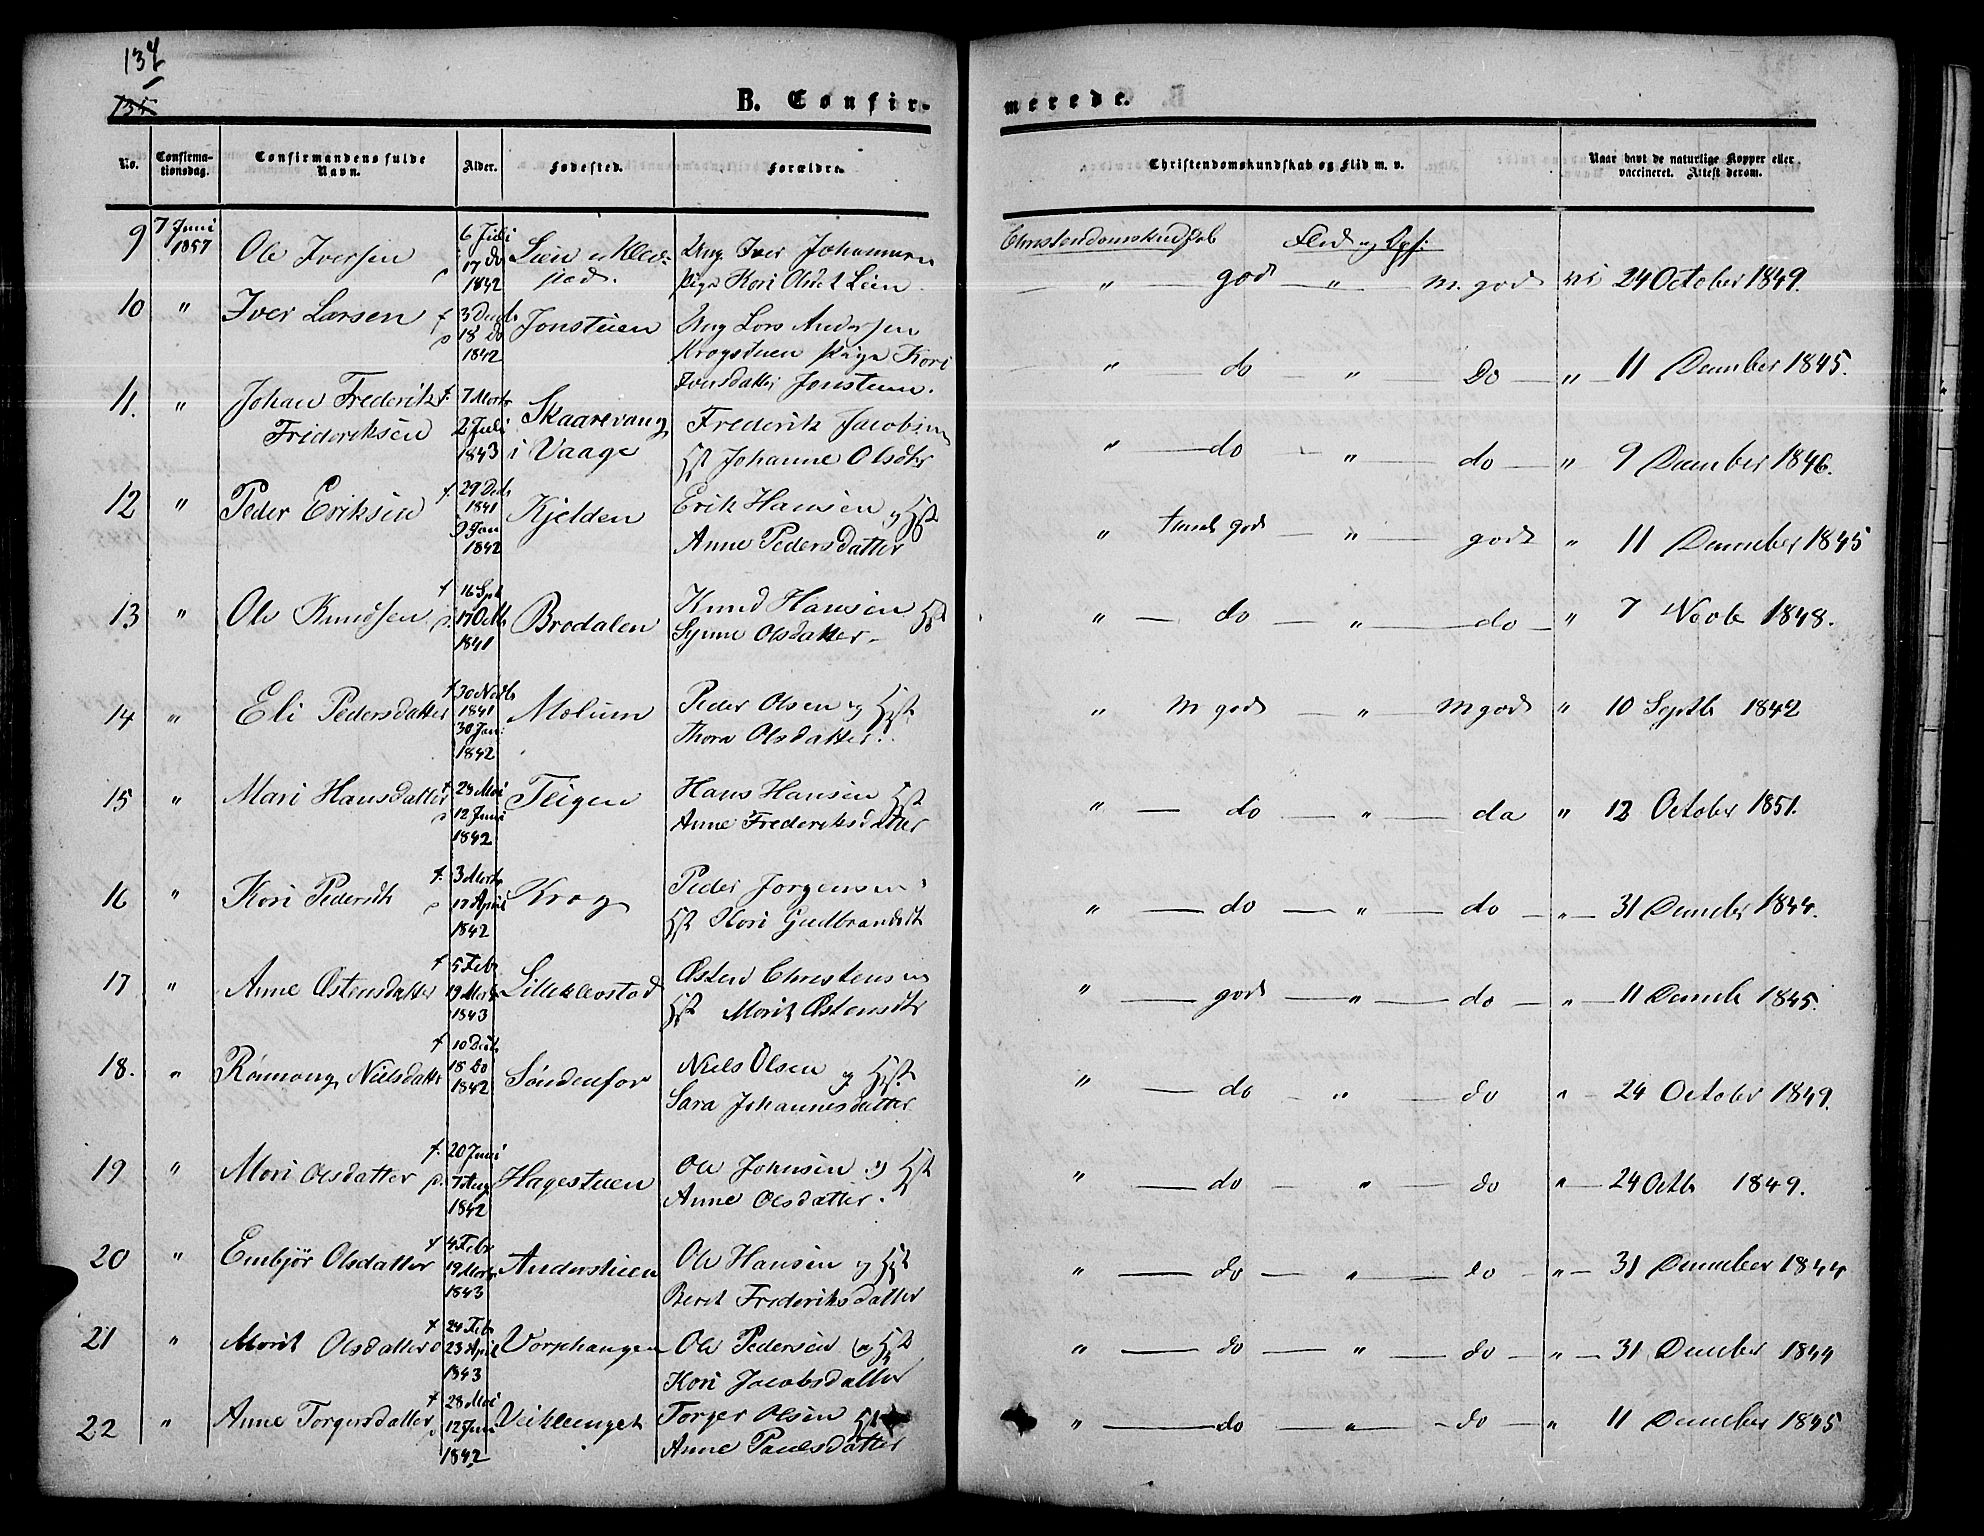 134
135
B. Confir-
merede.
No.
Confirma-
tionsdag.
Confirmandens fulde
Navn.
Alder.
Fødested.
Forældre.
Christendomskundskab og Flid m. v.
Naar havt de naturlige Kopper eller
vaccineret. Attest derom.
Christendomskundskab Flid og Opf:
9 7 Juni 1857 Ole Iversen 6 Juli 17 Do 1842 Lien
Ung Iver Johannesen
Pige Kari Olsdt Lien
" god " m. god 24 October 1849.
10 " Iver Larsen f 3 Decb 18 Do 1842 Jonstuen
Ung Lars Andersen
Krogstuen Pige Kari
Iversdatter Jonstuen.
" do " Do " 11 December 1845.
11. " Johan Frederik
Frideriksen
f. 7 Marts 2 Juli 1843
Skaarevang
i Vaage
Frederik Jacobsen
Hst Johanne Olsdtr
" do " do " 9 December 1846.
12 " Peder Eriksen f 29 Decb 1841 9 Jan 1842 Kjelden
Erik Hansen og Hst
Anne Pedersdatter
" temml god " god " 11 December 1845
13 " Ole Knudsen f 16 Spt 17 Octb 1841 Brodalen
Knud Hansen Hst
Synne Olsdatter
" do " do " 7 Novb 1848.
14 " Eli Pedersdatter f 30 Novb 1841 30 Jan: 1842 Molum
Peder Olsen og Hst
Thora Olsdatter.
" M god " M god " 10 Septb 1842
15 " Mari Hansdatter f 29 Mai 12 Juni 1842 Teigen
Hans Hansen Hst
Anne Frederiksdatter
" do " do " 12 October 1851.
16 " Kari Pedersdt f. 3 Marts 17 April 1842 Krog
Peder Jorgensen
Hst Kari Gudbrandsdt
" do " do " 31 December 1844.
17 " Anne Østensdatter f 5 Febr 19 Marts 1843 Lilleklevstad
Østen Christensen
Hst Marit Østensdtr
" god " do " 11 Decemb 1845.
18. " Rønnoug Nielsdatter f 10 Decb 18 Do 1842 Søndenfor
Niels Olsen og Hst.
Sara Johannesdatter
" do " do " 24 October 1849.
19 " Mari Olsdatter f. 20 Juni 7 Aug 1842 Hagestuen
Ole Johnsen og Hst
Anne Olsdatter.
" do " do " 24 Octb 1849.
20 " Embjør Olsdatter f 4 Febr 19 Marts 1843 Anderstuen
Ole Hansen og Hst
Berit Frederiksdatter
" do " do " 31 December 1844
21 " Marit Olsdatter f 24 Feb 23 April 1843 Vorphaugen
Ole Pedersen og Hst
Kari Jacobsdatter
" do " do " 31 December 1844
22 " Anne Torgersdatter f 28 Mai 12 Juni 1842 Veiklenget
Torger Olsen Hst
Anne Paulsdatter
" do " do " 11 December 1845